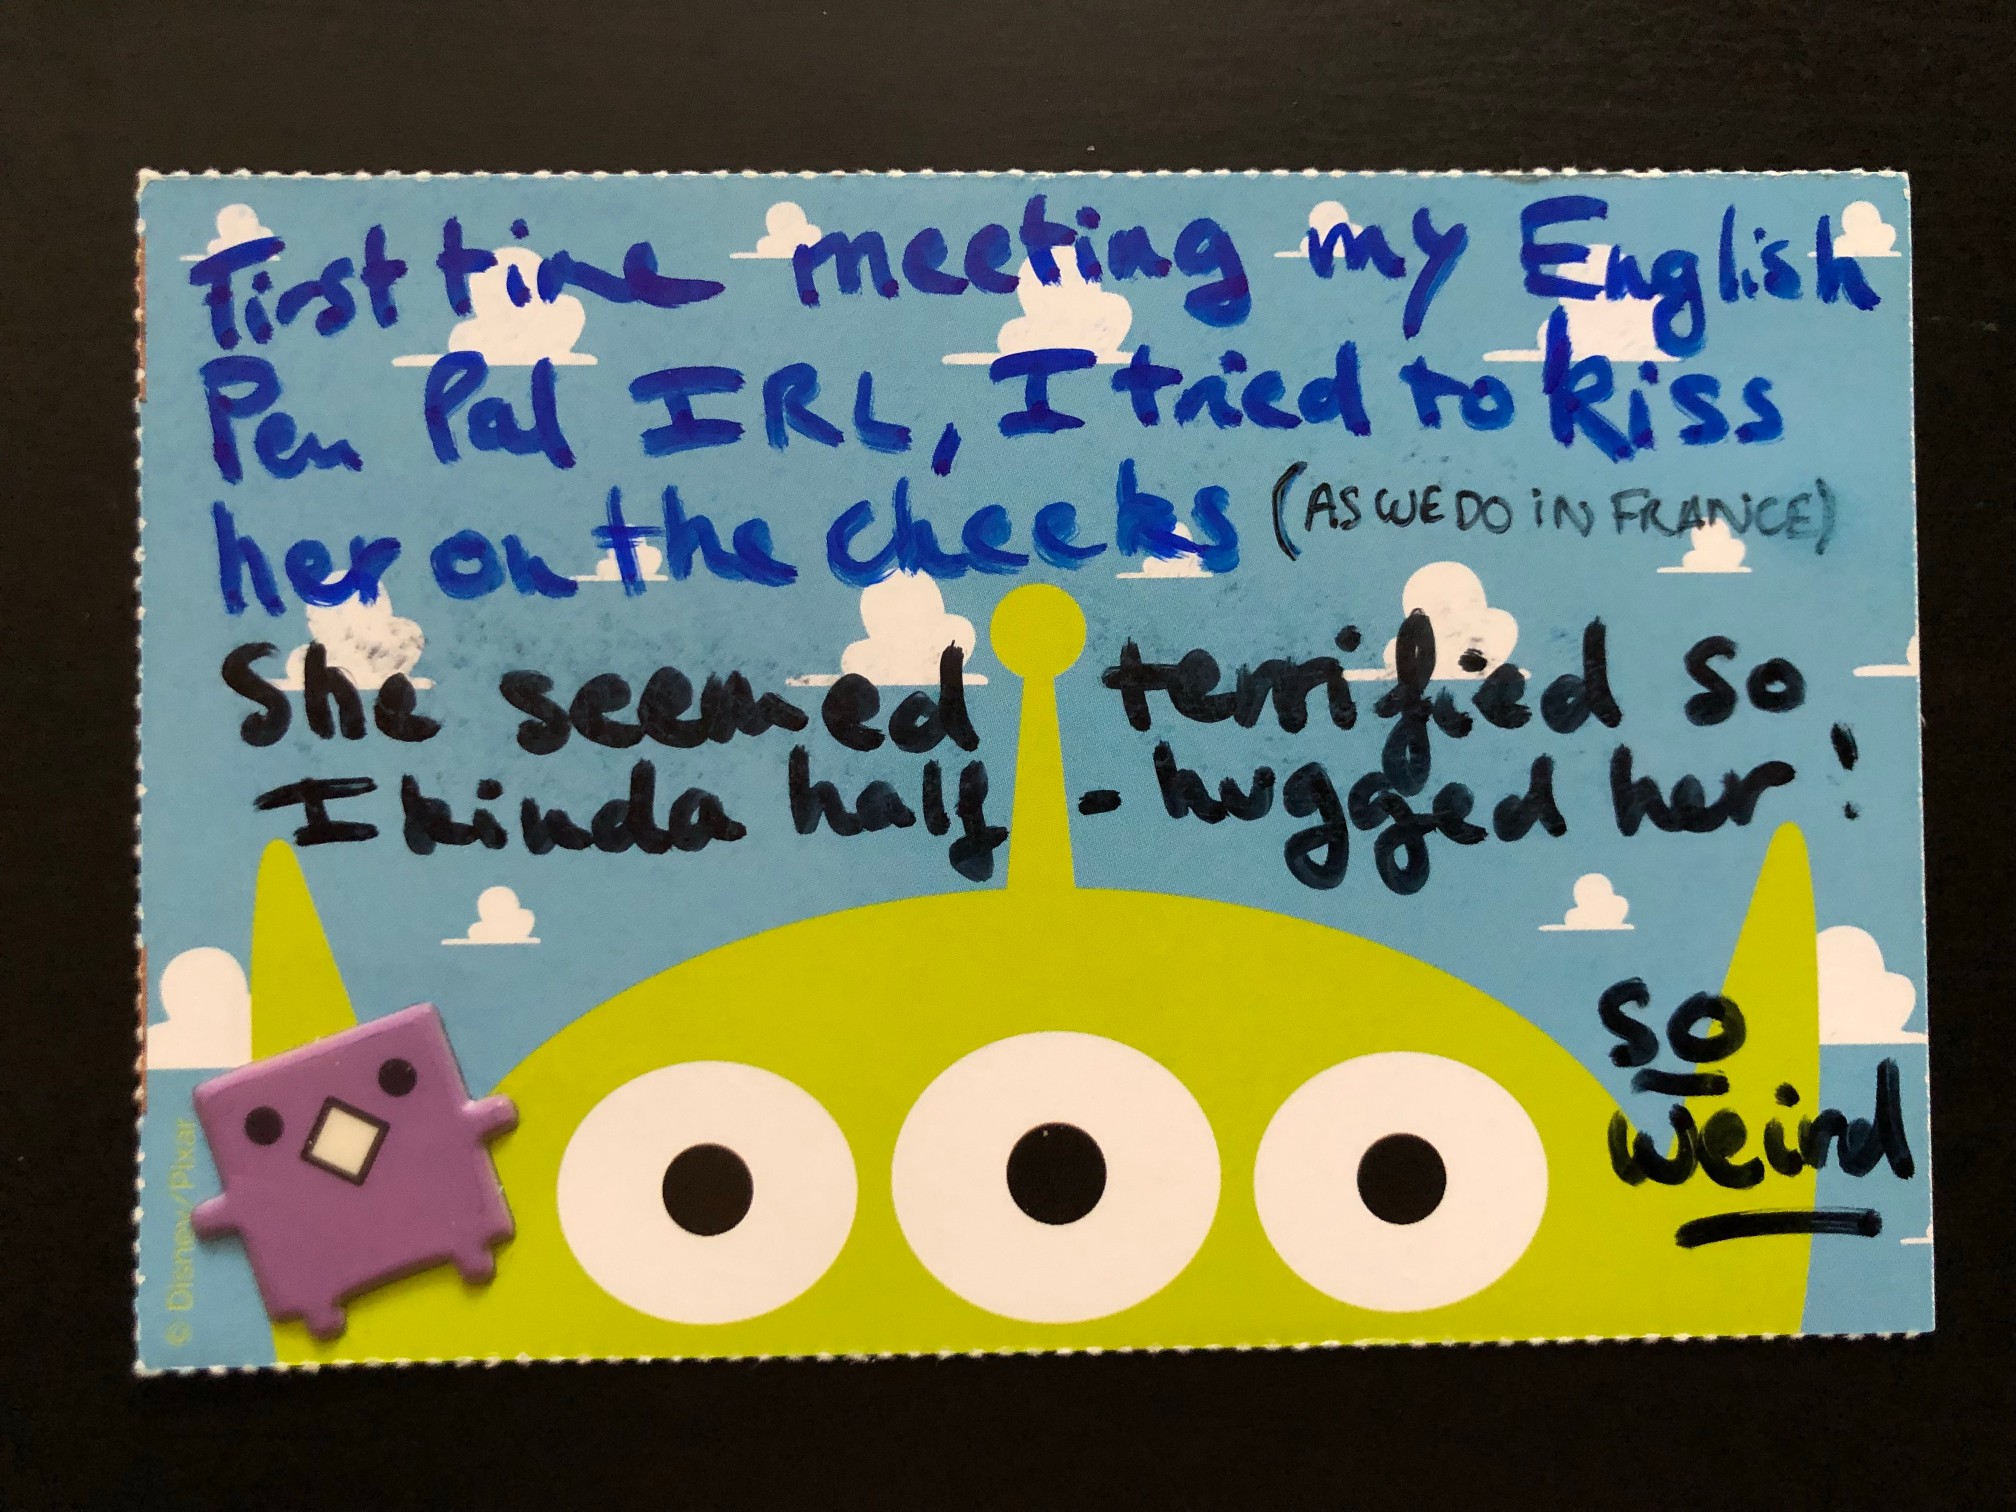 First time meeting my English
Pen Pal IRL, I tried to kiss
her on the cheeks (AS WE DO IN FRANCE)
She seemed terrified so
I kinda half-hugged her!
so
weird
© Disney/Pixar